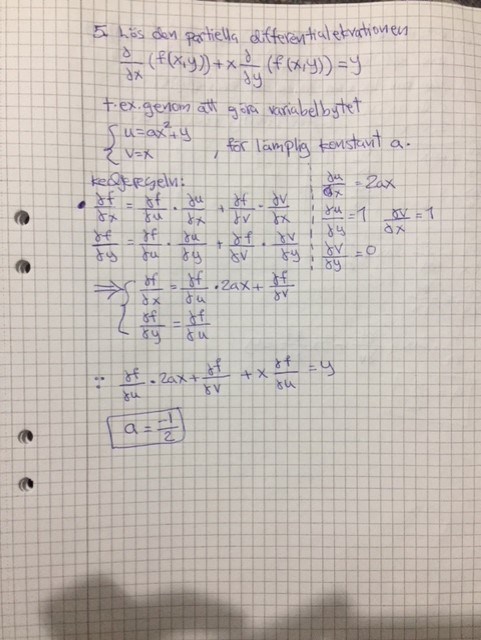 5. Lös den partiella differentialekvationen
∂/∂x (f(x,y)) + x ∂/∂y (f(x,y)) = y
t.ex. genom att göra variabelbytet
{ u = ax² + y
{ v = x , för lämplig konstant a.
kedjeregeln:
• ∂f/∂x = ∂f/∂u · ∂u/∂x + ∂f/∂v · ∂v/∂x
∂f/∂y = ∂f/∂u · ∂u/∂y + ∂f/∂v · ∂v/∂y
∂u/∂x = 2ax
∂u/∂y = 1 ∂v/∂x = 1
∂v/∂y = 0
⇒ { ∂f/∂x = ∂f/∂u · 2ax + ∂f/∂v
{ ∂f/∂y = ∂f/∂u
∵ ∂f/∂u · 2ax + ∂f/∂v + x ∂f/∂u = y
a = -1/2